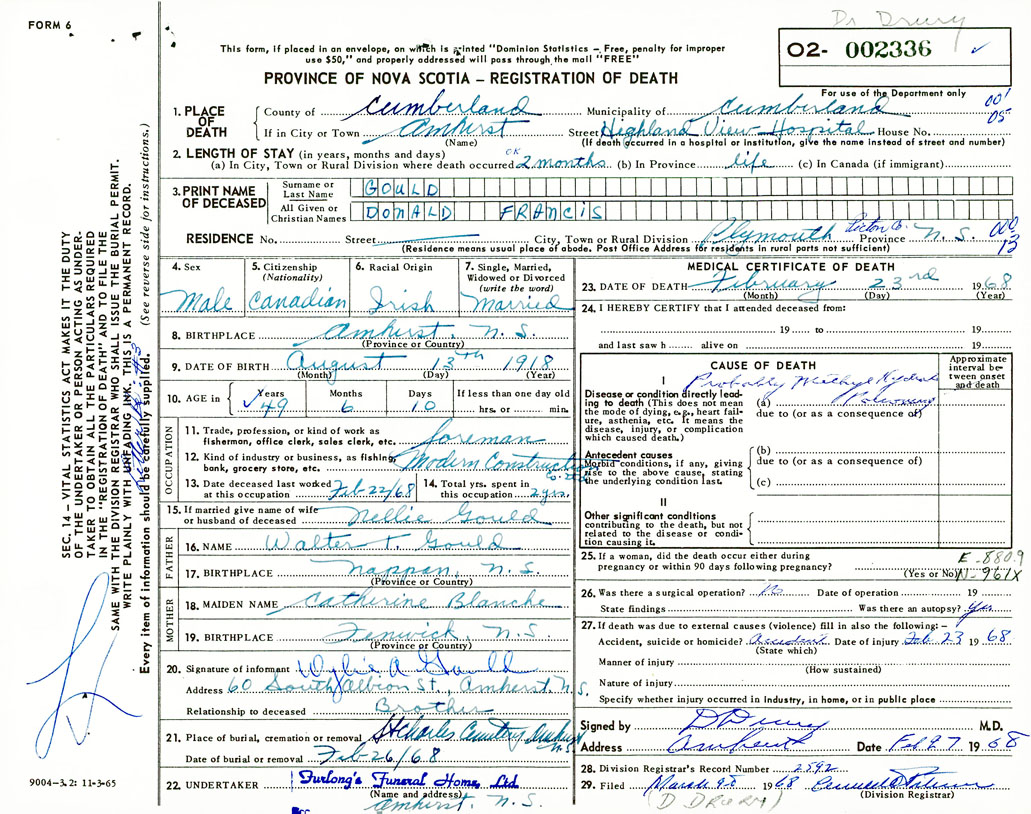 FORM 6
Dr Drury
This form, if placed in an envelope, on which is printed "Dominion Statistics – Free, penalty for improper
use $50," and properly addressed will pass through the mail "FREE"
O2- 002336 ✓
PROVINCE OF NOVA SCOTIA – REGISTRATION OF DEATH
For use of the Department only
001
05
1. PLACE OF DEATH
County of Cumberland Municipality of Cumberland
If in City or Town Amherst Street Highland View Hospital House No.
(Name) (If death occurred in a hospital or institution, give the name instead of street and number)
2. LENGTH OF STAY (in years, months and days)
(a) In City, Town or Rural Division where death occurred 2 months (b) In Province life (c) In Canada (if immigrant)
3. PRINT NAME OF DECEASED
Surname or Last Name GOULD
All Given or Christian Names DONALD FRANCIS
RESIDENCE No. Street City, Town or Rural Division Plymouth Pictou Co. Province N. S.
(Residence means usual place of abode. Post Office Address for residents in rural parts not sufficient)
000
13
4. Sex Male
5. Citizenship (Nationality) Canadian
6. Racial Origin Irish
7. Single, Married, Widowed or Divorced (write the word) Married
8. BIRTHPLACE Amherst, N. S.
(Province or Country)
9. DATE OF BIRTH August 13th 1918
(Month) (Day) (Year)
10. AGE in Years ✓49 Months 6 Days 10 If less than one day old hrs. or min.
OCCUPATION
11. Trade, profession, or kind of work as fisherman, office clerk, sales clerk, etc. foreman
12. Kind of industry or business, as fishing, bank, grocery store, etc. Modern Construction
13. Date deceased last worked at this occupation Feb 22/68
14. Total yrs. spent in this occupation 2 yrs.
15. If married give name of wife or husband of deceased Nellie Gould
FATHER
16. NAME Walter T. Gould
17. BIRTHPLACE Nappan, N. S.
(Province or Country)
MOTHER
18. MAIDEN NAME Catherine Blanche
19. BIRTHPLACE Fenwick, N. S.
(Province or Country)
20. Signature of informant Wylie A Gould
Address 60 South Albion St., Amherst, N. S.
Relationship to deceased Brother
21. Place of burial, cremation or removal St Charles Cemetery Amherst N S
Date of burial or removal Feb 26/68
22. UNDERTAKER Furlong's Funeral Home, Ltd.
(Name and address)
Amherst, N. S.
MEDICAL CERTIFICATE OF DEATH
23. DATE OF DEATH February 23rd 1968
(Month) (Day) (Year)
24. I HEREBY CERTIFY that I attended deceased from:
19 to 19
and last saw h alive on 19
CAUSE OF DEATH
Approximate interval between onset and death
I
Disease or condition directly leading to death (This does not mean the mode of dying, e.g., heart failure, asthenia, etc. It means the disease, injury, or complication which caused death.)
(a) Probably Methyl Hydrate Poisoning
due to (or as a consequence of)
Antecedent causes
Morbid conditions, if any, giving rise to the above cause, stating the underlying condition last.
(b)
due to (or as a consequence of)
(c)
II
Other significant conditions
contributing to the death, but not related to the disease or condition causing it.
25. If a woman, did the death occur either during pregnancy or within 90 days following pregnancy?
(Yes or No)
E-880.9
N-961X
26. Was there a surgical operation? No Date of operation 19
State findings Was there an autopsy? Yes
27. If death was due to external causes (violence) fill in also the following: –
Accident, suicide or homicide? Accident Date of injury Feb 23 1968
(State which)
Manner of injury
(How sustained)
Nature of injury
Specify whether injury occurred in industry, in home, or in public place
Signed by D Drury M.D.
Address Amherst Date Feb 27 1968
28. Division Registrar's Record Number 2392
29. Filed March 1968
(Division Registrar)
(D DRURY)
SEC. 14 – VITAL STATISTICS ACT MAKES IT THE DUTY
OF THE UNDERTAKER OR PERSON ACTING AS UNDER-
TAKER TO OBTAIN ALL THE PARTICULARS REQUIRED
IN THE "REGISTRATION OF DEATH" AND TO FILE THE
SAME WITH THE DIVISION REGISTRAR WHO SHALL ISSUE THE BURIAL PERMIT.
WRITE PLAINLY WITH UNFADING INK. THIS IS A PERMANENT RECORD.
Every item of information should be carefully supplied. (See reverse side for instructions.)
9004-3.2: 11-3-65